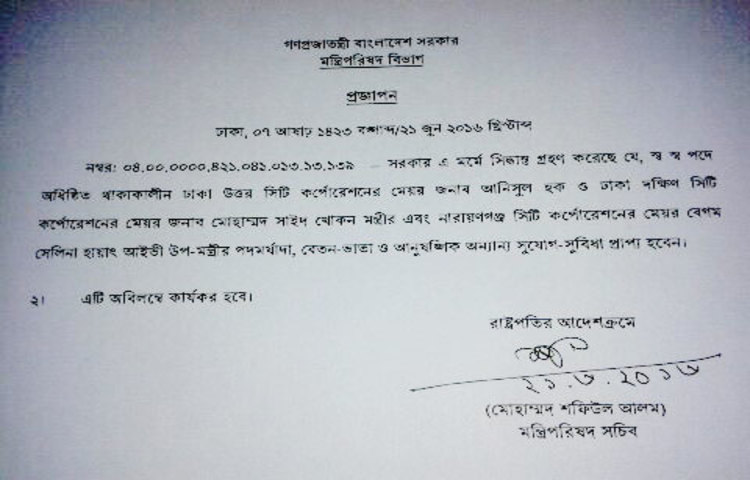 গণপ্রজাতন্ত্রী বাংলাদেশ সরকার
মন্ত্রিপরিষদ বিভাগ
প্রজ্ঞাপন
ঢাকা, ০৭ আষাঢ় ১৪২৩ বঙ্গাব্দ/২১ জুন ২০১৬ খ্রিস্টাব্দ
নম্বর: ০৪.০০.০০০০.৪২১.০৪১.০১৩.১৩.১৩৯ – সরকার এ মর্মে সিদ্ধান্ত গ্রহণ করেছে যে, স্ব স্ব পদে
অধিষ্ঠিত থাকাকালীন ঢাকা উত্তর সিটি কর্পোরেশনের মেয়র জনাব আনিসুল হক ও ঢাকা দক্ষিণ সিটি
কর্পোরেশনের মেয়র জনাব মোহাম্মদ সাইদ খোকন মন্ত্রীর এবং নারায়ণগঞ্জ সিটি কর্পোরেশনের মেয়র বেগম
সেলিনা হায়াৎ আইভী উপ-মন্ত্রীর পদমর্যাদা, বেতন-ভাতা ও আনুষঙ্গিক অন্যান্য সুযোগ-সুবিধা প্রাপ্য হবেন।
২। এটি অবিলম্বে কার্যকর হবে।
রাষ্ট্রপতির আদেশক্রমে
২১.৬.২০১৬
(মোহাম্মদ শফিউল আলম)
মন্ত্রিপরিষদ সচিব